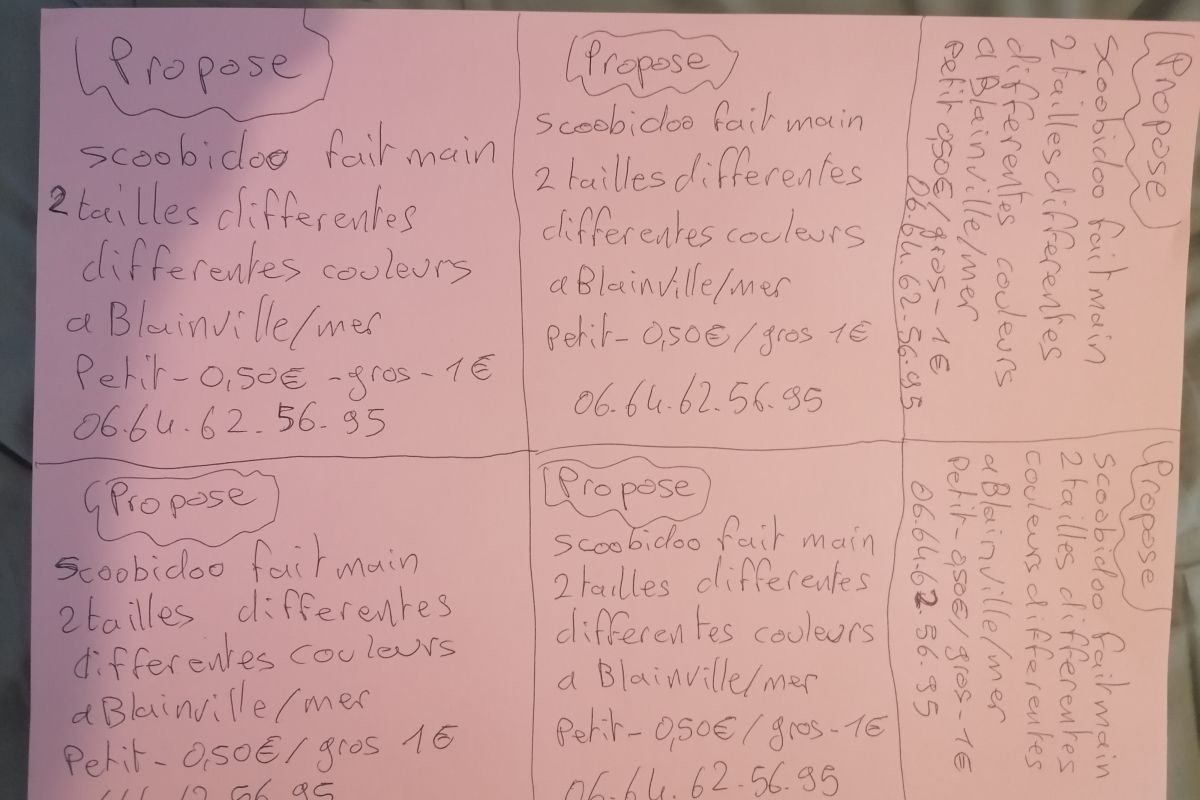 Propose
scoobidoo fait main
2 tailles differentes
differentes couleurs
a Blainville/mer
Petit - 0,50€ - gros - 1€
06.64.62.56.95
Propose
scoobidoo fait main
2 tailles differentes
differentes couleurs
a Blainville/mer
Petit - 0,50€ / gros 1€
06.64.62.56.95
Propose
scoobidoo fait main
2 tailles differentes
differentes couleurs
a Blainville/mer
Petit 0,50€/gros - 1€
06.64.62.56.95
Propose
scoobidoo fait main
2 tailles differentes
differentes couleurs
a Blainville/mer
Petit - 0,50€/ gros 1€
56.95
Propose
scoobidoo fait main
2 tailles differentes
differentes couleurs
a Blainville/mer
Petit - 0,50€/ gros - 1€
06.64.62.56.95
Propose
scoobidoo fait main
2 tailles differentes
couleurs differentes
a Blainville/mer
Petit - 0,50€/gros - 1€
06.64.62.56.95